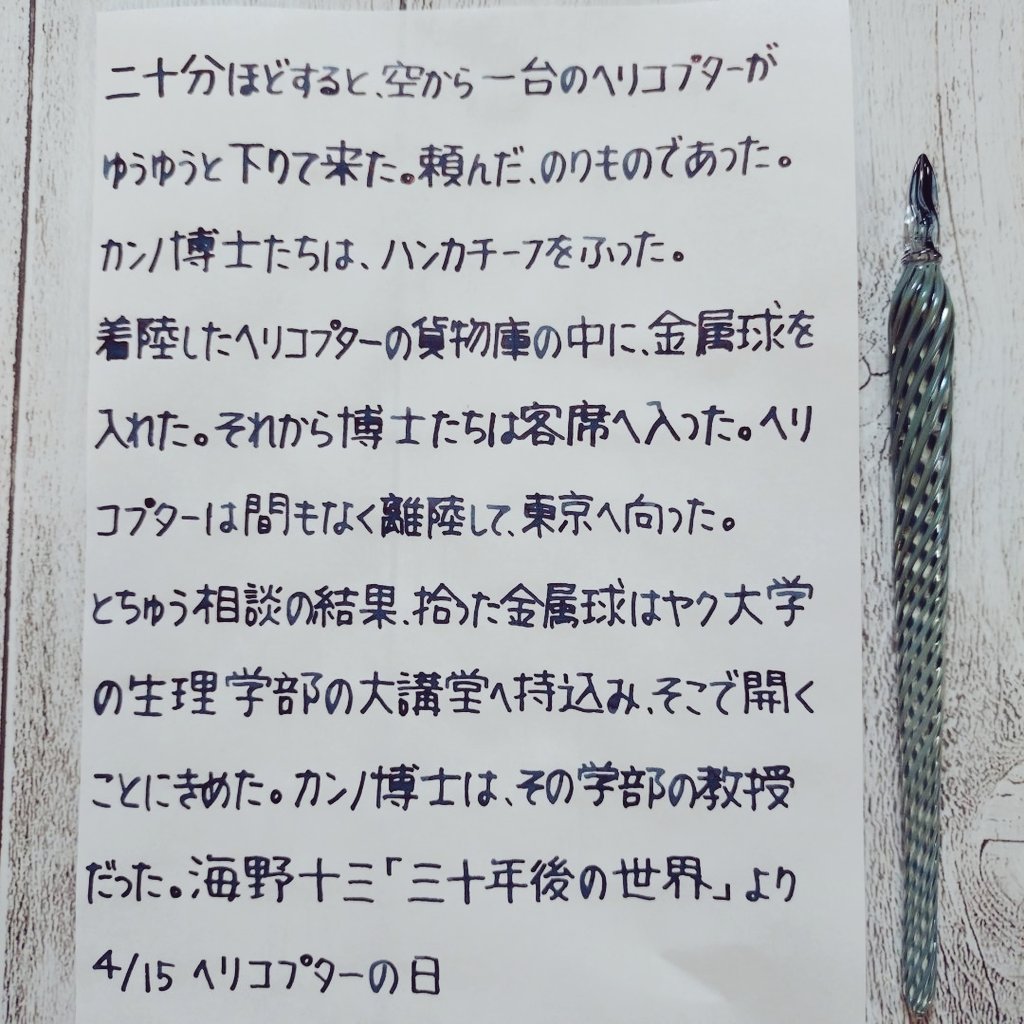 二十分ほどすると、空から一台のヘリコプターが
ゆうゆうと下りて来た。頼んだ、のりものであった。
カンノ博士たちは、ハンカチーフをふった。
着陸したヘリコプターの貨物庫の中に、金属球を
入れた。それから博士たちは客席へ入った。ヘリ
コプターは間もなく離陸して、東京へ向った。
とちゅう相談の結果、拾った金属球はヤク大学
の生理学部の大講堂へ持込み、そこで開く
ことにきめた。カンノ博士は、その学部の教授
だった。海野十三「三十年後の世界」より
4/15 ヘリコプターの日